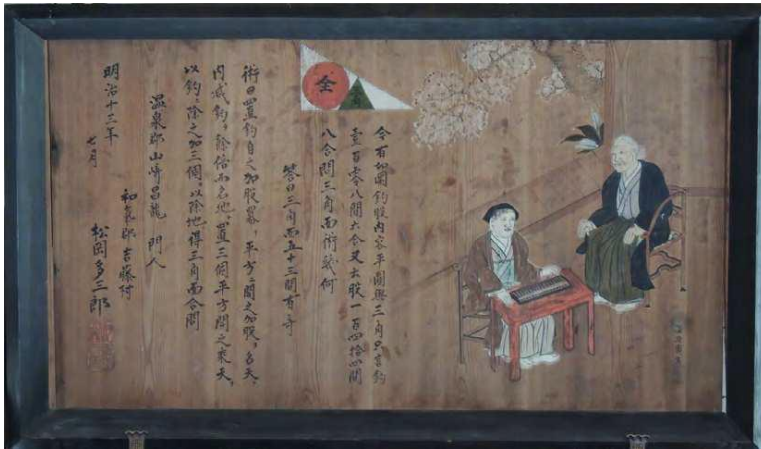 全
今有如圖鈎股内容平圓與三角只言鈎
壹百零八間六合又云股一百四拾四間
八合問三角面術幾何
答曰三角面五十三間有奇
術曰置鈎自之加股冪,平方開之加股,名天,
内减鈎,餘倍而名地,置三個平方開之乘天,
以鈎除之加三個,以除地得三角面合問
温泉郡山崎昌龍 門人
和氣郡吉藤村
明治十三年
七月
松岡多三郎